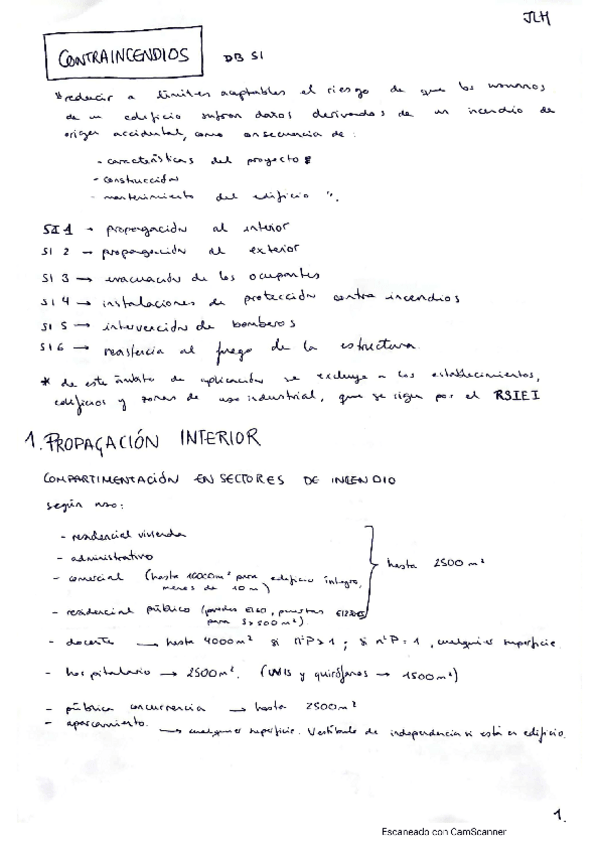 JLH
CONTRAINCENDIOS DB SI
"reducir a límites aceptables el riesgo de que los usuarios
de un edificio sufran daños derivados de un incendio de
origen accidental, como consecuencia de:
- características del proyecto
- construcción
- mantenimiento del edificio".
SI 1 → propagación al interior
SI 2 → propagación al exterior
SI 3 → evacuación de los ocupantes
SI 4 → instalaciones de protección contra incendios
SI 5 → intervención de bomberos
SI 6 → resistencia al fuego de la estructura
* de este ámbito de aplicación se excluye a los establecimientos,
edificios y zonas de uso industrial, que se rigen por el RSIEI
1. PROPAGACIÓN INTERIOR
COMPARTIMENTACIÓN EN SECTORES DE INCENDIO
según uso:
- residencial vivienda
- administrativo
hasta 2500 m²
- comercial (hasta 10000m² para edificio íntegro,
menos de 10m)
- residencial público (paredes EI60, puertas
para S>500m²)
- docente → hasta 4000m² si nºP>1; si nºP=1, cualquier superficie.
- hospitalario → 2500m². (UVIs y quirófanos → 1500m²)
- pública concurrencia → hasta 2500m²
- aparcamiento.
→ cualquier superficie. Vestíbulo de independencia si está en edificio.
1.
Escaneado con CamScanner